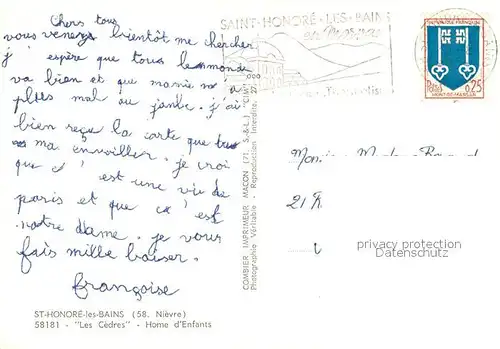 Chers tous
vous venez bientôt me chercher
j'espère que tous le monde
va bien et que mamie n'a
plus mal au jambe. j'ai
bien reçu la carte que tu
ma envoiller. je croi
que c'est une vue de
paris et que ça' est
notre dame. je vous
fais mille baiser.
françoise
ST-HONORÉ-les-BAINS (58. Nièvre)
58181 - "Les Cèdres" - Home d'Enfants
COMBIER IMPRIMEUR MACON (71. S.-&-L.) "CIM"
Photographie Véritable - Reproduction Interdite.
SAINT-HONORÉ-LES-BAINS
en Morvan
REPUBLIQUE FRANÇAISE
Postes
0,25
MONT-DE-MARSAN
21 R
privacy protection
Datenschutz